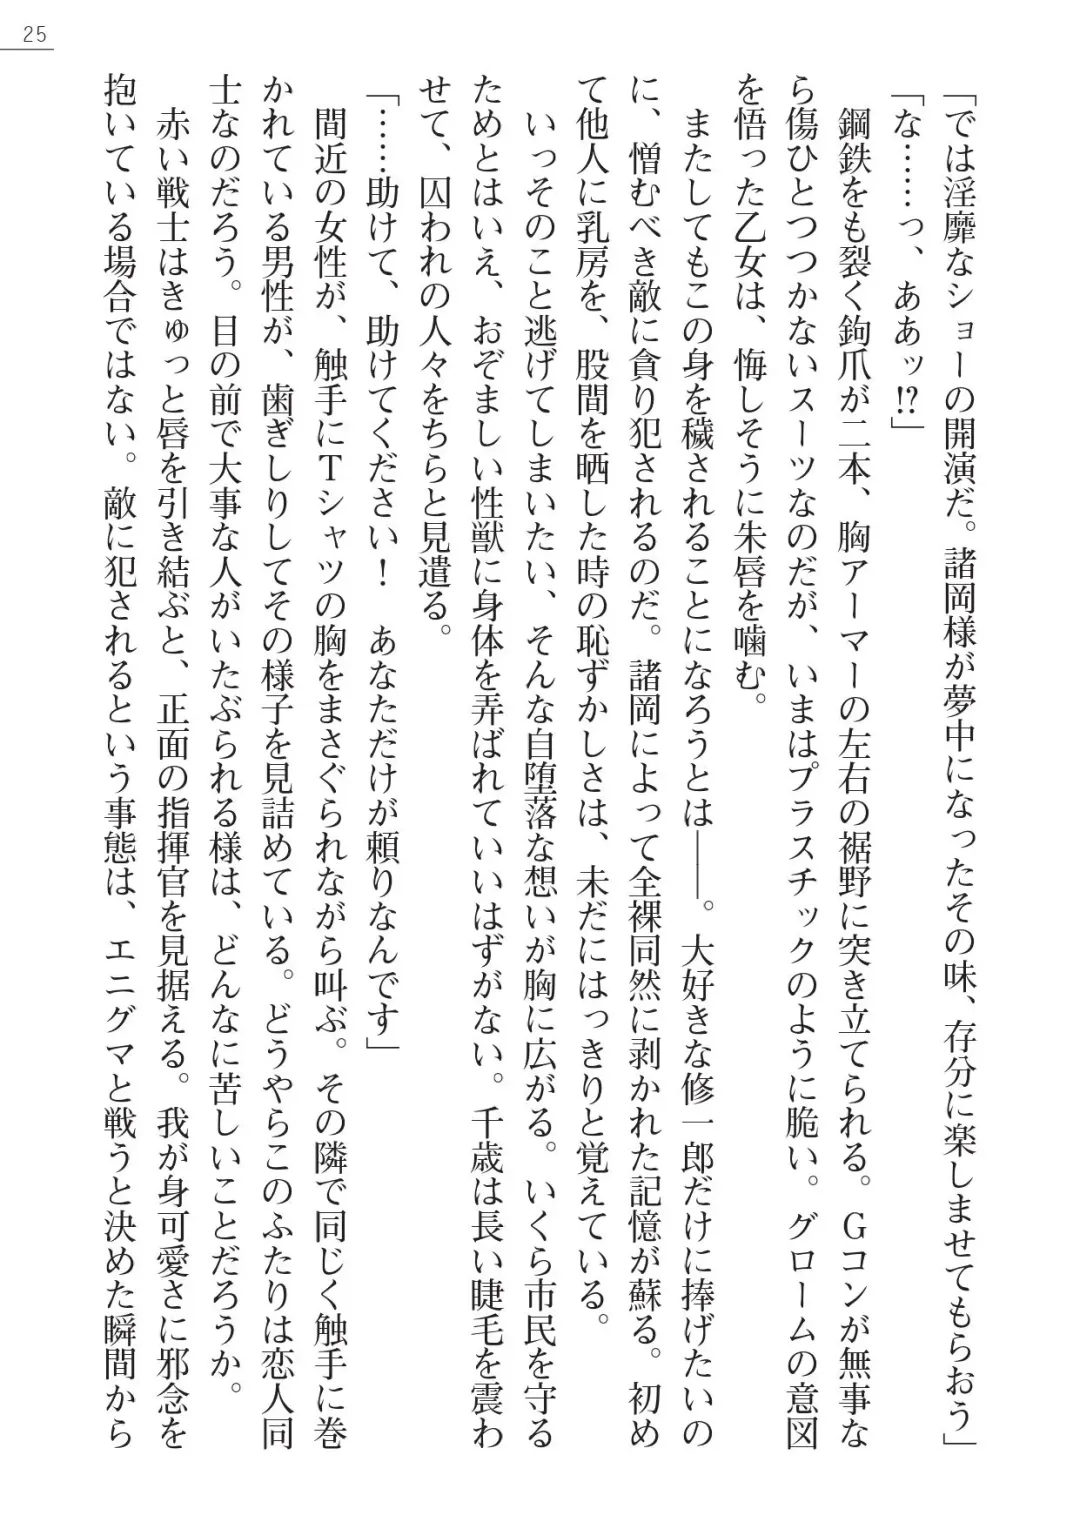 25
「では淫靡なショーの開演だ。諸岡様が夢中になったその味、存分に楽しませてもらおう」
「な……っ、ああッ!?」
　鋼鉄をも裂く鉤爪が二本、胸アーマーの左右の裾野に突き立てられる。Gコンが無事な
ら傷ひとつつかないスーツなのだが、いまはプラスチックのように脆い。グロームの意図
を悟った乙女は、悔しそうに朱唇を噛む。
　またしてもこの身を穢されることになろうとは――。大好きな修一郎だけに捧げたいの
に、憎むべき敵に貪り犯されるのだ。諸岡によって全裸同然に剥かれた記憶が蘇る。初め
て他人に乳房を、股間を晒した時の恥ずかしさは、未だにはっきりと覚えている。
　いっそのこと逃げてしまいたい、そんな自堕落な想いが胸に広がる。いくら市民を守る
ためとはいえ、おぞましい性獣に身体を弄ばれていいはずがない。千歳は長い睫毛を震わ
せて、囚われの人々をちらと見遣る。
「……助けて、助けてください！　あなただけが頼りなんです」
　間近の女性が、触手にTシャツの胸をまさぐられながら叫ぶ。その隣で同じく触手に巻
かれている男性が、歯ぎしりしてその様子を見詰めている。どうやらこのふたりは恋人同
士なのだろう。目の前で大事な人がいたぶられる様は、どんなに苦しいことだろうか。
　赤い戦士はきゅっと唇を引き結ぶと、正面の指揮官を見据える。我が身可愛さに邪念を
抱いている場合ではない。敵に犯されるという事態は、エニグマと戦うと決めた瞬間から